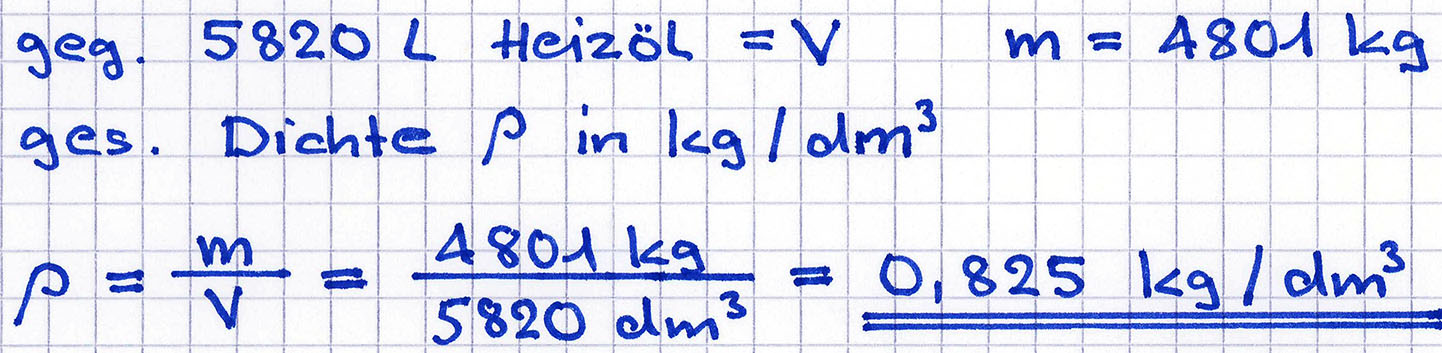 geg. 5820 L Heizöl = V m = 4801 kg
ges. Dichte ρ in kg/dm³
ρ = m/V = 4801 kg / 5820 dm³ = 0,825 kg/dm³